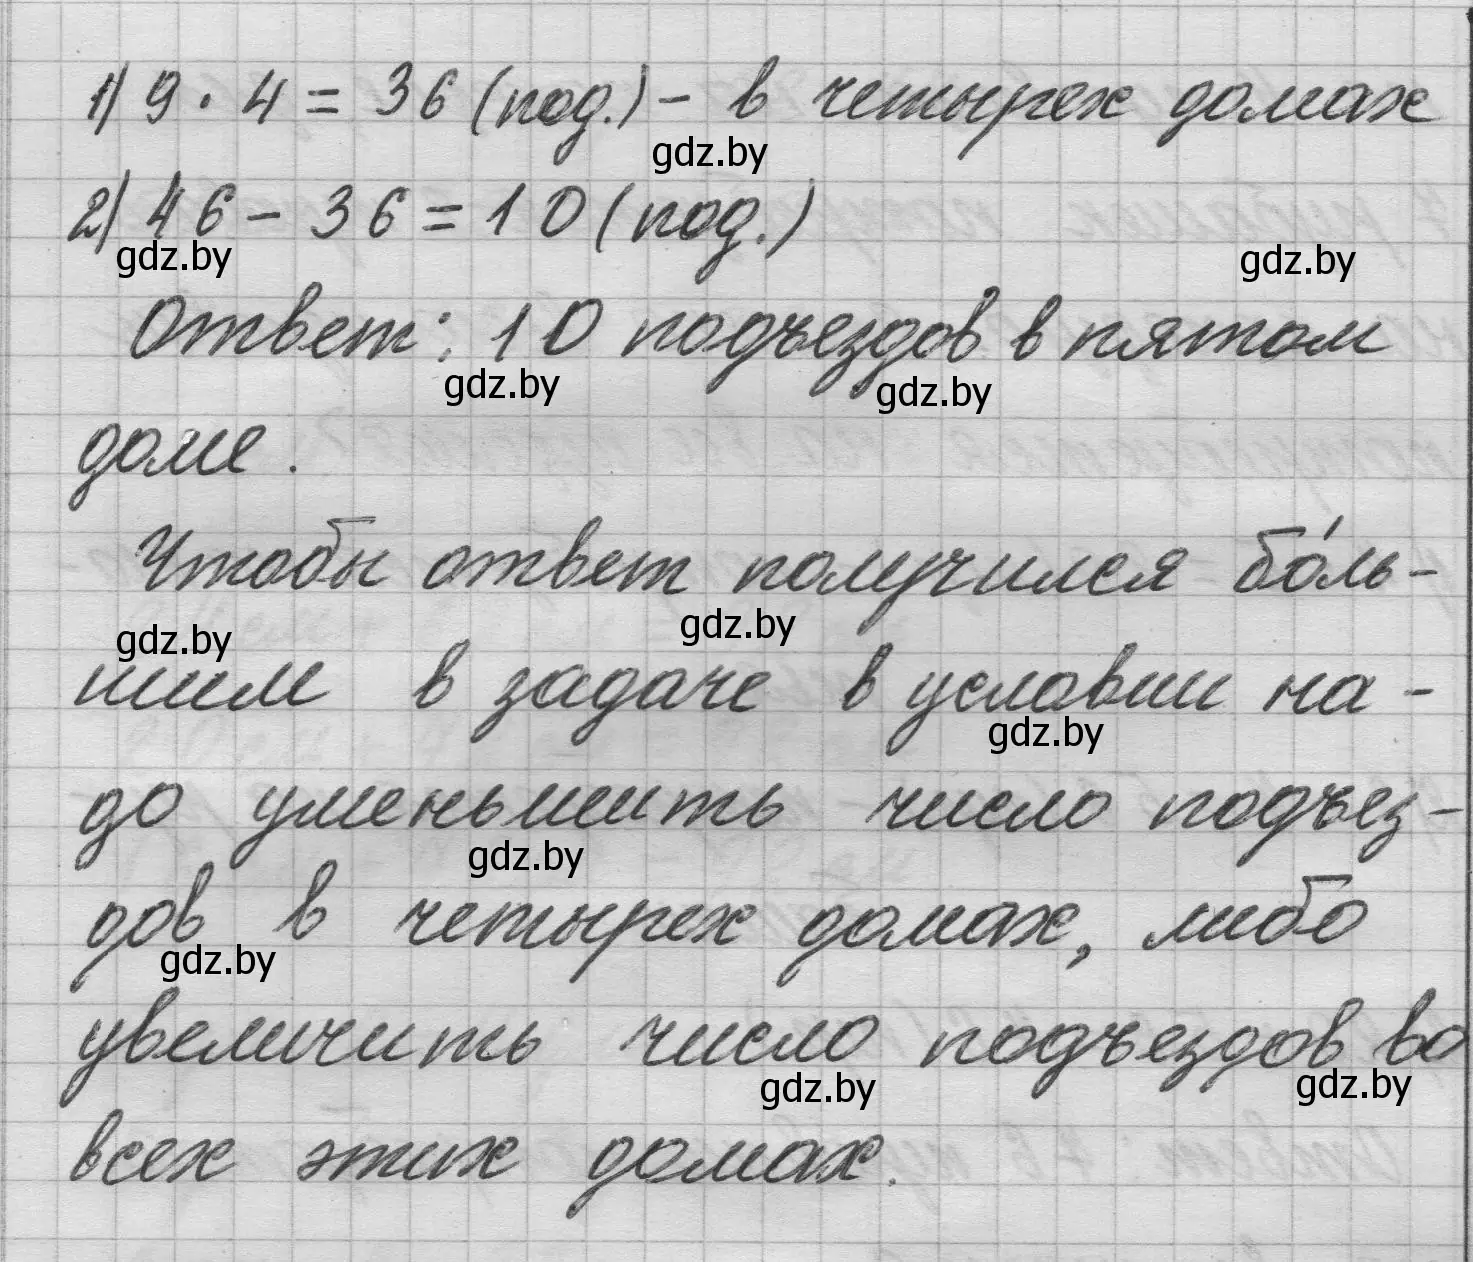 1) 9 · 4 = 36 (под.) - в четырех домах
gdz.by
2) 46 - 36 = 10 (под.)
gdz.by gdz.by
Ответ: 10 подъездов в пятом
gdz.by gdz.by
доме.
Чтобы ответ получился бо́ль-
gdz.by gdz.by
шим в задаче в условии на-
gdz.by
до уменьшить число подъез-
gdz.by
дов в четырех домах, либо
gdz.by
увеличить число подъездов во
gdz.by gdz.by
всех этих домах.